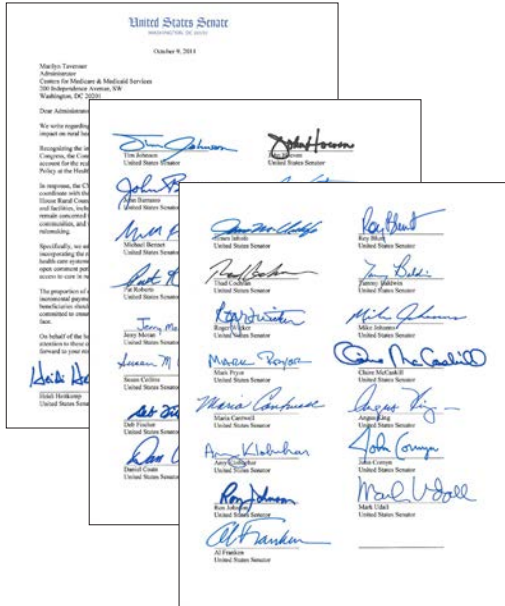 United States Senate
WASHINGTON, DC 20510
October 9, 2013
Marilyn Tavenner
Administrator
Centers for Medicare & Medicaid Services
200 Independence Avenue, SW
Washington, DC 20201
Dear Administrator
We write regarding
impact on rural
Recognizing the
Congress, the
account for the
Policy at the
In response, the
coordinate with the
House Rural
and facilities,
remain concerned
communities, and
rulemaking.
Specifically, we
incorporating the
health care
open comment
access to care in
The proportion of
incremental
beneficiaries should
committed to
face.
On behalf of the
attention to these
forward to your
Heidi
Heidi Heitkamp
United States
Tim Johnson
Tim Johnson
United States Senator
John Hoeven
John Hoeven
United States Senator
John
John Barrasso
United States Senator
Michael Bennet
United States Senator
Pat
Pat Roberts
United States Senator
Jerry
Jerry Moran
United States Senator
Susan M
Susan Collins
United States Senator
Deb
Deb Fischer
United States Senator
Dan
Daniel Coats
United States Senator
United States Senator
Roy Blunt
Roy Blunt
United States Senator
Thad Cochran
Thad Cochran
United States Senator
Tammy Baldwin
Tammy Baldwin
United States Senator
Roger Wicker
Roger Wicker
United States Senator
Mike Johanns
Mike Johanns
United States Senator
Mark Pryor
Mark Pryor
United States Senator
Claire McCaskill
Claire McCaskill
United States Senator
Maria Cantwell
Maria Cantwell
United States Senator
Angus King
Angus King
United States Senator
Amy Klobuchar
Amy Klobuchar
United States Senator
John Cornyn
John Cornyn
United States Senator
Ron Johnson
Ron Johnson
United States Senator
Mark Udall
Mark Udall
United States Senator
Al Franken
Al Franken
United States Senator